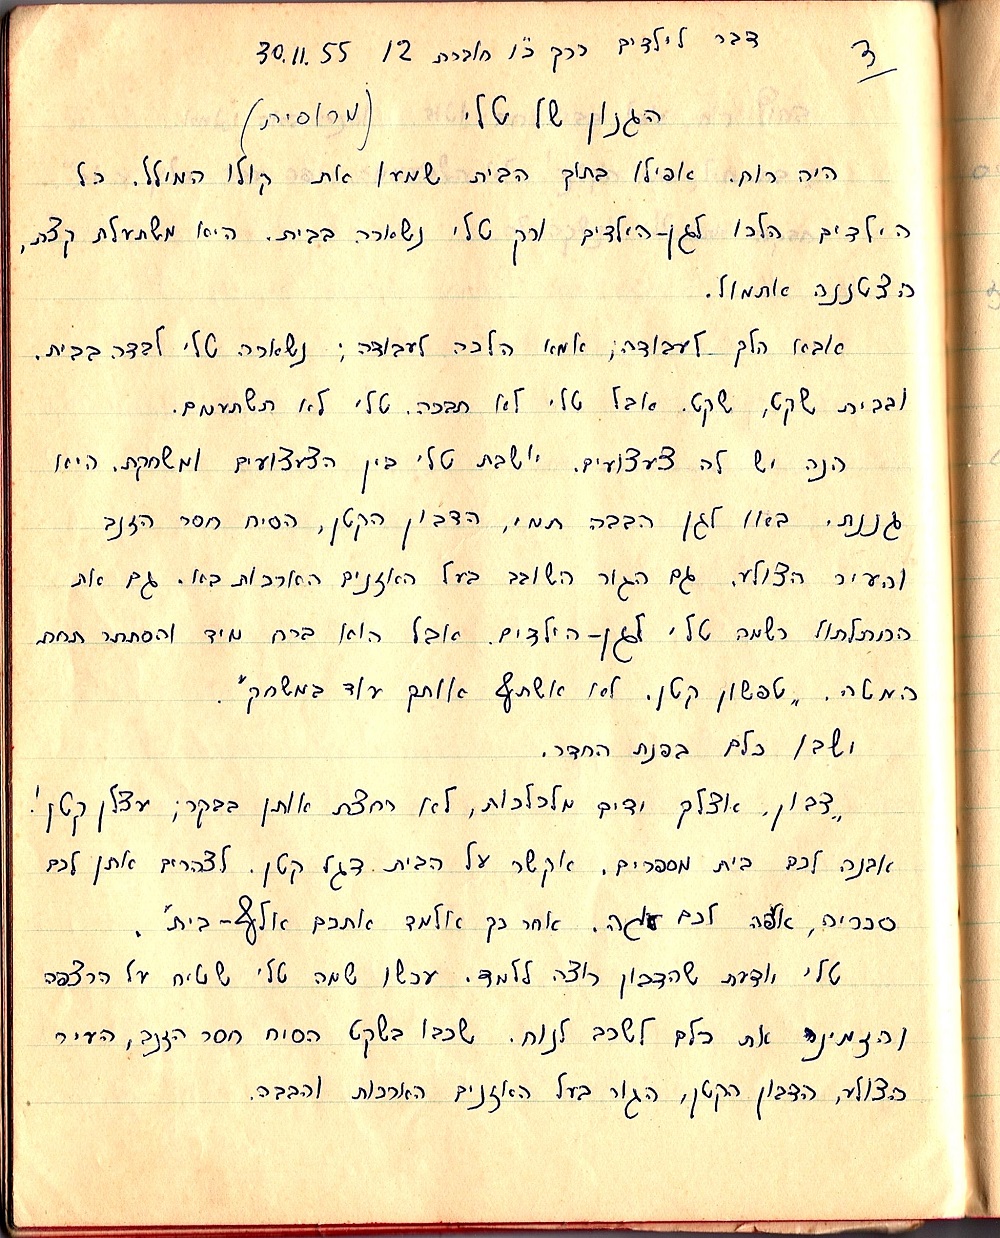 3
דבר לילדים כרך כ"ו חוברת 12 30.11.55
הגנון של טלי (מרוסית)
היה רוח. אפילו בתוך הבית שמעו את קולו המילל. כל
הילדים הלכו לגן-הילדים ורק טלי נשארה בבית. היא משתעלת קצת,
הצטננה אתמול.
אבא הלך לעבודה; אמא הלכה לעבודה; נשארה טלי לבדה בבית.
ובבית שקט, שקט. אבל טלי לא תבכה. טלי לא תשתעמם.
הנה יש לה צעצועים. יושבת טלי בין הצעצועים ומשחקת. היא
גננת. באו לגן הבבה תמי, הדבון הקטן, הסיח חסר הזנב
והעיר הצולע. גם הגור השובב בעל האזנים הארכות בא. גם את
החתלתול רשמה טלי לגן-הילדים. אבל הוא ברח מיד והסתתר תחת
המטה. "טפשון קטן. לא אשתף אותך עוד במשחק".
ישבו כלם בפנת החדר.
"דבון, אצלך ידים מלכלכות, לא רחצת אותן בבקר; עצלן קטן!
אבנה לכם בית מספרים. אקשר על הבית דגל קטן. לצהרים אתן לכם
סכריה, אפה לכם עגה. אחר כך אלמד אתכם אלף-בית".
טלי יודעת שהדבון רוצה ללמד. עכשו שמה טלי שטיח על הרצפה
והזמינה את כלם לשכב לנוח. שכבו בשקט הסיח חסר הזנב, העיר
הצולע, הדבון הקטן, הגור בעל האזנים הארכות והבבה.